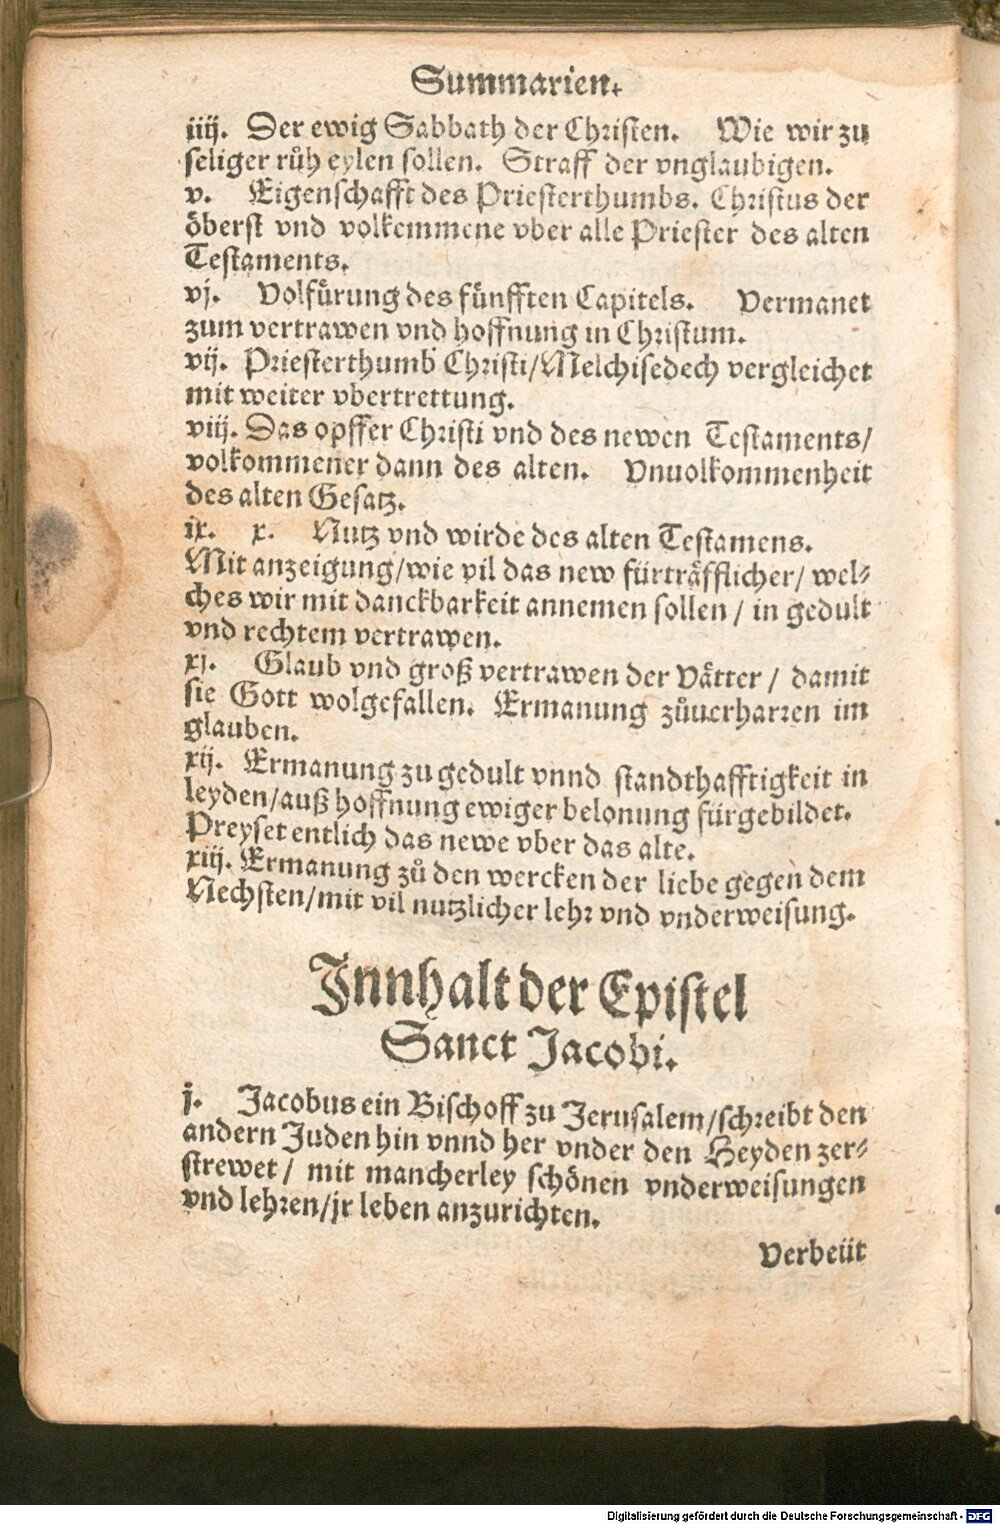 Summarien.
iiij. Der ewig Sabbath der Christen. Wie wir zu
seliger růh eylen sollen. Straff der vnglaubigen.
v. Eigenschafft des Priesterthumbs. Christus der
öberst vnd volkemmene vber alle Priester des alten
Testaments.
vj. Volfürung des fünfften Capitels. Vermanet
zum vertrawen vnd hoffnung in Christum.
vij. Priesterthumb Christi/Melchisedech vergleichet
mit weiter vbertrettung.
viij. Das opffer Christi vnd des newen Testaments/
volkommener dann des alten. Vnuolkommenheit
des alten Gesatz.
ix. x. Nutz vnd wirde des alten Testamens.
Mit anzeigung/wie vil das new fürträfflicher/ wel⸗
ches wir mit danckbarkeit annemen sollen / in gedult
vnd rechtem vertrawen.
xj. Glaub vnd groß vertrawen der Vätter / damit
sie Gott wolgefallen. Ermanung zůuerharren im
glauben.
xij. Ermanung zu gedult vnnd standthafftigkeit in
leyden/auß hoffnung ewiger belonung fürgebildet.
Preyset entlich das newe vber das alte.
xiij. Ermanung zů den wercken der liebe gegen dem
Nechsten/mit vil nutzlicher lehr vnd vnderweisung.
Innhalt der Epistel
Sanct Jacobi.
j. Jacobus ein Bischoff zu Jerusalem/schreibt den
andern Juden hin vnnd her vnder den Heyden zer⸗
strewet / mit mancherley schönen vnderweisungen
vnd lehren/jr leben anzurichten.
Verbeüt
Digitalisierung gefördert durch die Deutsche Forschungsgemeinschaft - DFG